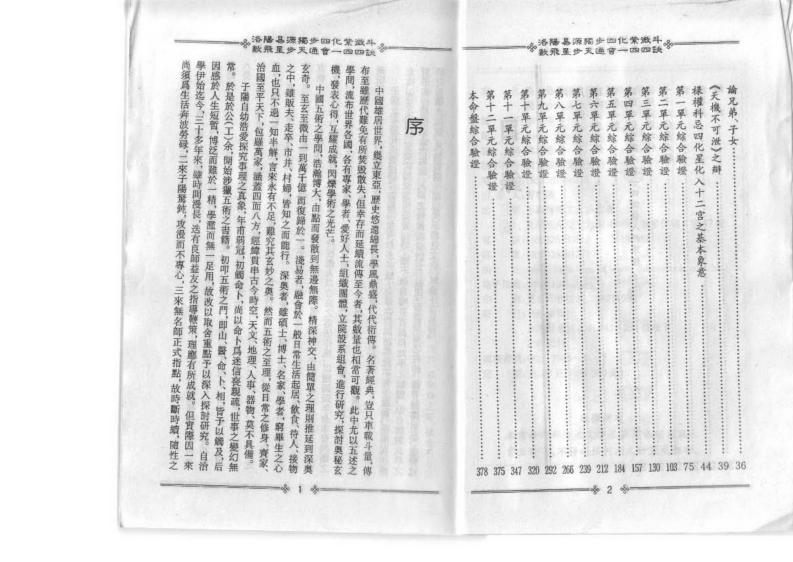 洛陽易源獨步四化紫微斗
數飛星步天通會一四四訣
論兄弟、子女……36
《天機不可泄》之辯……39
祿權科忌四化星化入十二宮之基本象意……44
第一單元綜合驗證……75
第二單元綜合驗證……103
第三單元綜合驗證……130
第四單元綜合驗證……157
第五單元綜合驗證……184
第六單元綜合驗證……212
第七單元綜合驗證……239
第八單元綜合驗證……266
第九單元綜合驗證……292
第十單元綜合驗證……320
第十一單元綜合驗證……347
第十二單元綜合驗證……375
本命盤綜合驗證……378
2
洛陽易源獨步四化紫微斗
數飛星步天通會一四四訣
序
中國雄居世界,巍立東亞,歷史悠遠綿長,學風鼎盛,代代衍傳。名著經典,豈只車載斗量,傳
布至今雖歷代難免有所焚毀散失,但幸存而延續流傳至今者,其數量也相當可觀。此中尤以五述之
學問,流布世界各國,各有專家、學者、愛好人士,組織團體,立院設系組會,進行研究,探討奧秘玄
機,發表心得,互耀成就,閃爍學術之光芒。
中國五術之學問,浩瀚博大,由點而發散到無邊無際。精深神交,由簡單之理則推延到深奧
玄奇。至玄至微由一到萬千億,而復歸於一。淺易者,融會於一般日常生活起居、飲食、待人、接物
之中,雖販夫、走卒、市井、村婦,皆知之而能行。深奧者,雖碩士、博士、名家、學者,窮畢生之心
血,也只不過一知半解,言來永有不足,難究其玄妙之奧。然而五術之至理,從日常之修身、齊家、
治國至平天下,包羅萬家,涵蓋四面八方,經緯貫串古今時空,天文、地理、人事、器物,莫不具備。
子陽自幼浩愛探究事理之真象,年甫弱冠,初觸命卜,尚以命卜爲迷信喪親疏,世事之變幻無
常。於是於公(工)余,開始涉獵五術之書籍。初叩五術之門,即山、醫、命、卜、相,皆予以觸及,后
因感於人生短暫,博泛而難於一精,學尷而無一足用,故改以取舍重點予以深入探討研究。自治
學伊始迄今,三十多年來,雖時間漫長,迭有良師益友之指導鞭策,理應有所成就。但實際因一來
尚須爲生活奔波勞碌,二來子陽駑鈍,攻漫而不專心,三來無名師正式指點,故時斷時續,隨性之
1